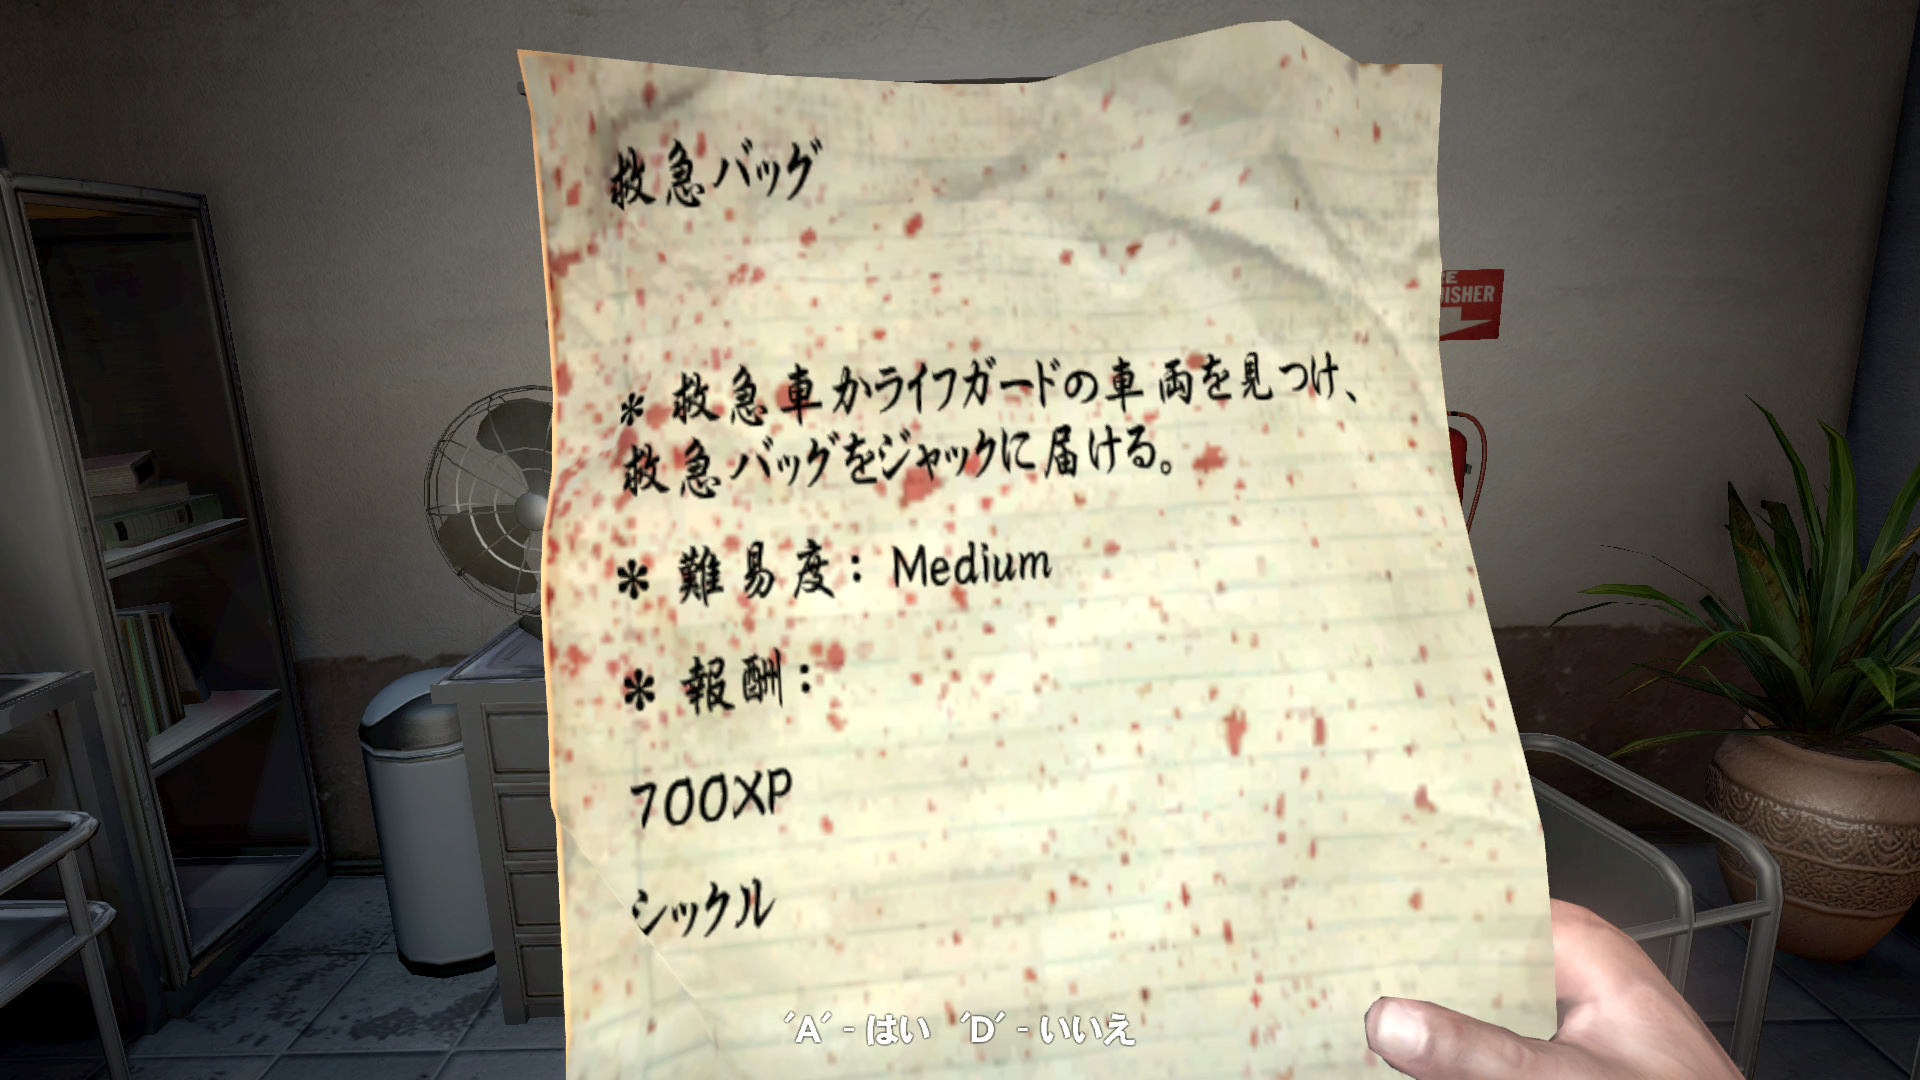 救急バッグ
* 救急車かライフガードの車両を見つけ、
救急バッグをジャックに届ける。
* 難易度: Medium
* 報酬:
700XP
シックル
RE
UISHER
'A' - はい 'D' - いいえ